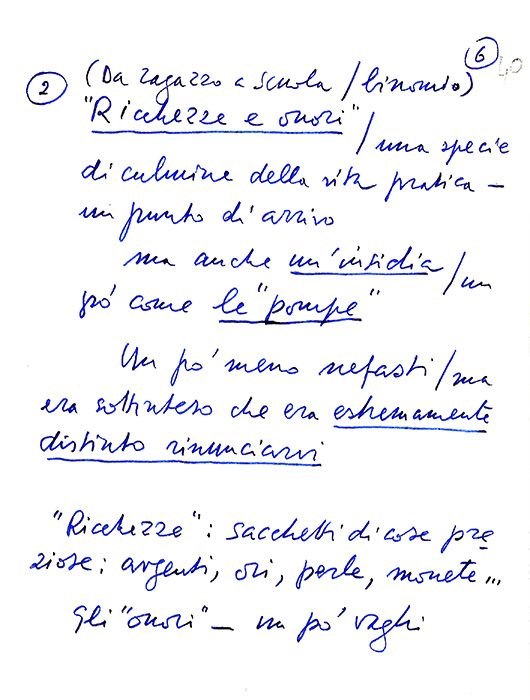 6
40
2 (Da ragazzo a scuola / binomio)
"Ricchezze e onori" / una specie
di culmine della vita pratica –
un punto di arrivo
ma anche un'insidia / un
pò come le "pompe"
Un pò meno nefasti / ma
era sottinteso che era estremamente
distinto rinunciarvi
"Ricchezze": sacchetti di cose pre
ziose: argenti, ori, perle, monete...
Gli "onori" – un pò vaghi